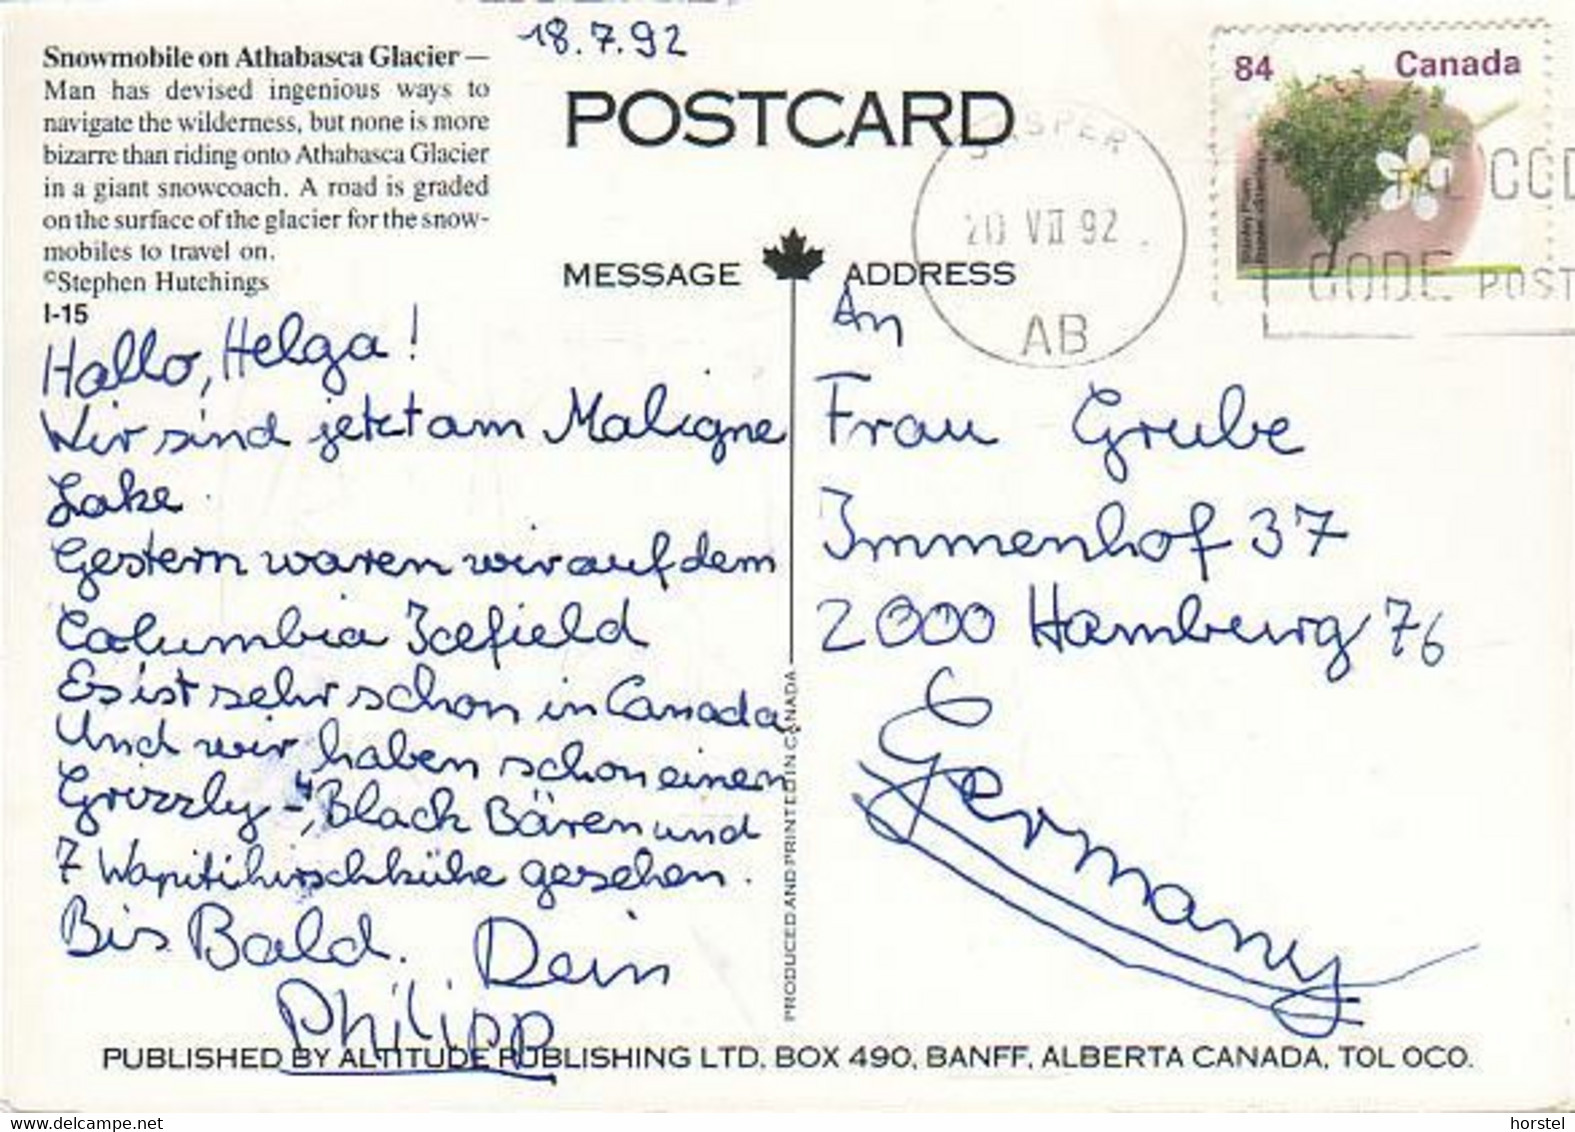 18.7.92
Snowmobile on Athabasca Glacier —
Man has devised ingenious ways to
navigate the wilderness, but none is more
bizarre than riding onto Athabasca Glacier
in a giant snowcoach. A road is graded
on the surface of the glacier for the snow-
mobiles to travel on.
©Stephen Hutchings
I-15
POSTCARD
MESSAGE ADDRESS
84 Canada
JASPER
20 VII 92
AB
CODE POST
Hallo, Helga!
Wir sind jetzt am Maligne
Lake.
Gestern waren wir auf dem
Columbia Icefield
Es ist sehr schon in Canada.
Und wir haben schon einen
Grizzly-, 4 Black Bären und
7 Wapitihirschkühe gesehen.
Bis Bald. Dein
Philipp
An
Frau Grube
Immenhof 37
2000 Hamburg 76
Germany
PRODUCED AND PRINTED IN CANADA
PUBLISHED BY ALTITUDE PUBLISHING LTD. BOX 490, BANFF, ALBERTA CANADA, TOL OCO.
www.delcampe.net
horstel